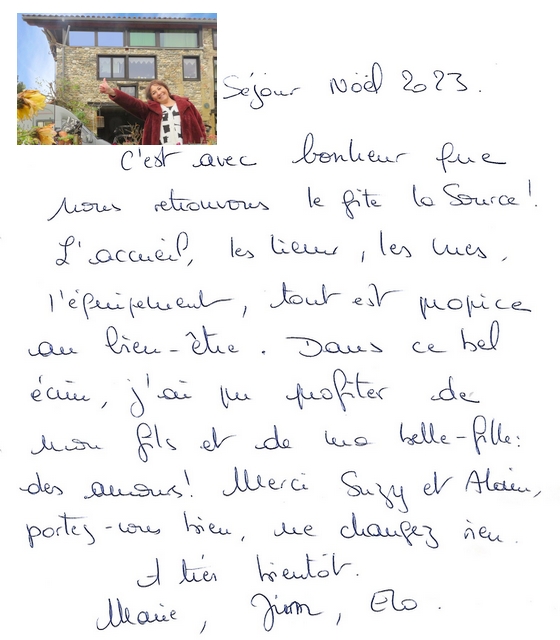 Séjour Noël 2023.
C'est avec bonheur que
nous retrouvons le gîte la Source!
L'accueil, les lieux, les vues,
l'équipement, tout est propice
au bien-être. Dans ce bel
écrin, j'ai pu profiter de
mon fils et de ma belle-fille:
des amours! Merci Suzy et Alain,
portez-vous bien, ne changez rien.
A très bientôt.
Marie, Jimm, Elo.